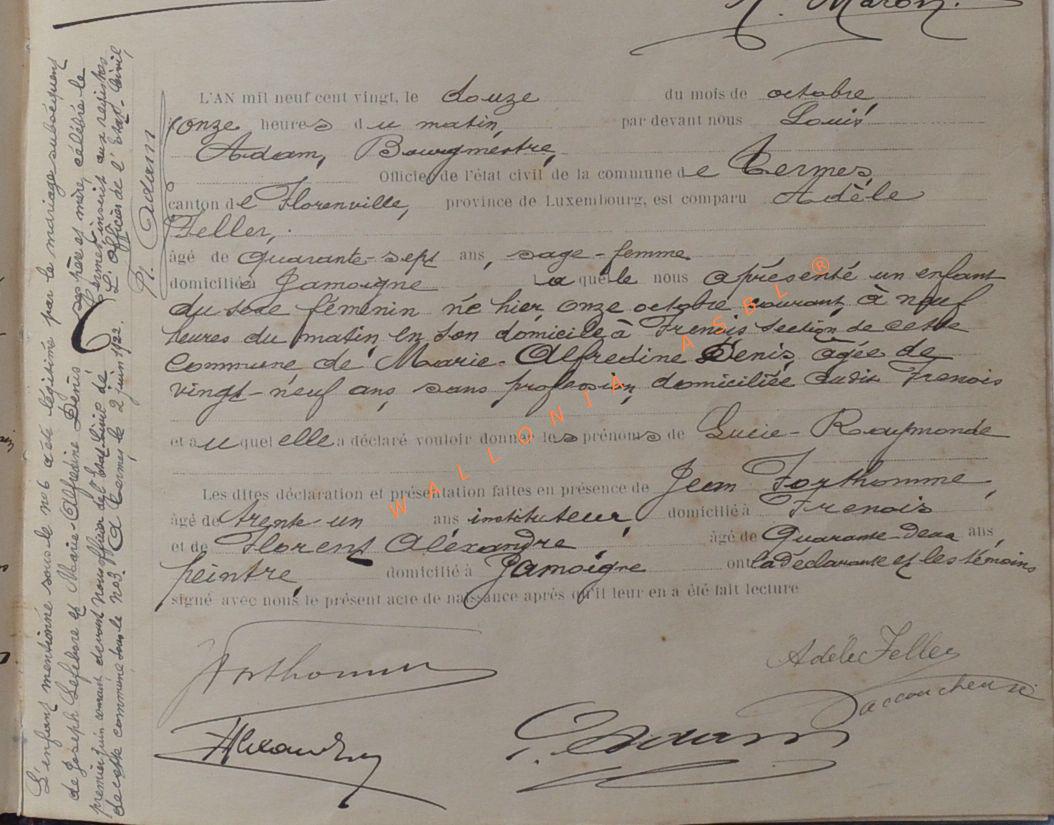 Maron.
L'AN mil neuf cent vingt, le douze du mois de octobre
onze heures du matin, par devant nous Louis
Adam, Bourgmestre,
Officier de l'état civil de la commune de Termes,
canton de Florenville, province de Luxembourg, est comparu Adèle
Feller,
âgé de quarante-sept ans, sage-femme
domicilié à Jamoigne laquelle nous a présenté un enfant
du sexe féminin né hier onze octobre courant, à neuf
heures du matin en son domicile à Frenois section de cette
commune de Marie-Alfredine Denis, agée de
vingt-neuf ans, sans profession, domiciliée audit Frenois
et au quel elle a déclaré vouloir donner les prénoms de Lucie-Raymonde
Les dites déclaration et présentation faites en présence de Jean Forthomme,
âgé de trente-un ans instituteur, domicilié à Frenois
et de Florent Alexandre âgé de quarante-deux ans,
peintre, domicilié à Jamoigne ont la déclarante et les témoins
signé avec nous le présent acte de naissance après qu'il leur en a été fait lecture
Forthomme
Adèle Feller
accoucheuse
Alexandre
L. Adam
L'enfant mentionné sous le no 6 a été légitimé par le mariage subséquent
de Joseph Lefebvre et Marie-Alfredine Denis ses père et mère, célébré le
premier juin courant devant nous officier de l'état-civil de Termes, inscrit aux registres
de cette commune sous le no 3. A Termes, le 2 juin 1922 L'Officier de l'état-civil,
L. Adam
WALLONIA ASBL ®